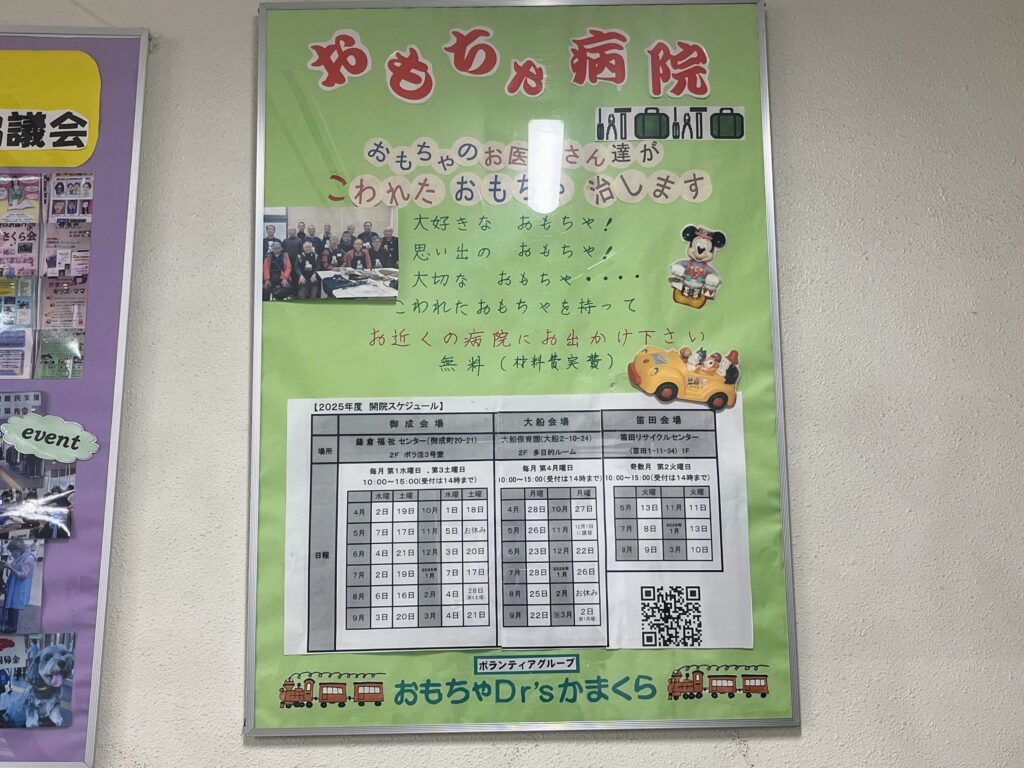 議会
さくら会
event
おもちゃ病院
おもちゃのお医 さん達が
こわれた おもちゃ 治します
大好きな おもちゃ!
思い出の おもちゃ!
大切な おもちゃ・・・・
こわれたおもちゃを持って
お近くの病院にお出かけ下さい
無料(材料費実費)
【2025年度 開院スケジュール】
御成会場 大船会場 笛田会場
場所
鎌倉福祉センター(御成町20-21) 大船保育園(大船2-10-24) 笛田リサイクルセンター
2F ボラ活3号室 2F 多目的ルーム (笛田1-11-34) 1F
日程
毎月 第1水曜日 、第3土曜日 毎月 第4月曜日 奇数月 第2火曜日
10:00~15:00(受付は14時まで) 10:00~15:00(受付は14時まで) 10:00~15:00(受付は14時まで)
水曜 土曜 水曜 土曜
4月 2日 19日 10月 1日 18日
5月 7日 17日 11月 5日 お休み
6月 4日 21日 12月 3日 20日
7月 2日 19日 2026年1月 7日 17日
8月 6日 16日 2月 4日 28日(第4土曜)
9月 3日 20日 3月 4日 21日
月曜 月曜
4月 28日 10月 27日
5月 26日 11月 12月1日に振替
6月 23日 12月 22日
7月 28日 2026年1月 26日
8月 25日 2月 お休み
9月 22日 ※3月 2日(第1月曜)
火曜 火曜
5月 13日 11月 11日
7月 8日 2026年1月 13日
9月 9日 3月 10日
ボランティアグループ
おもちゃDr'sかまくら